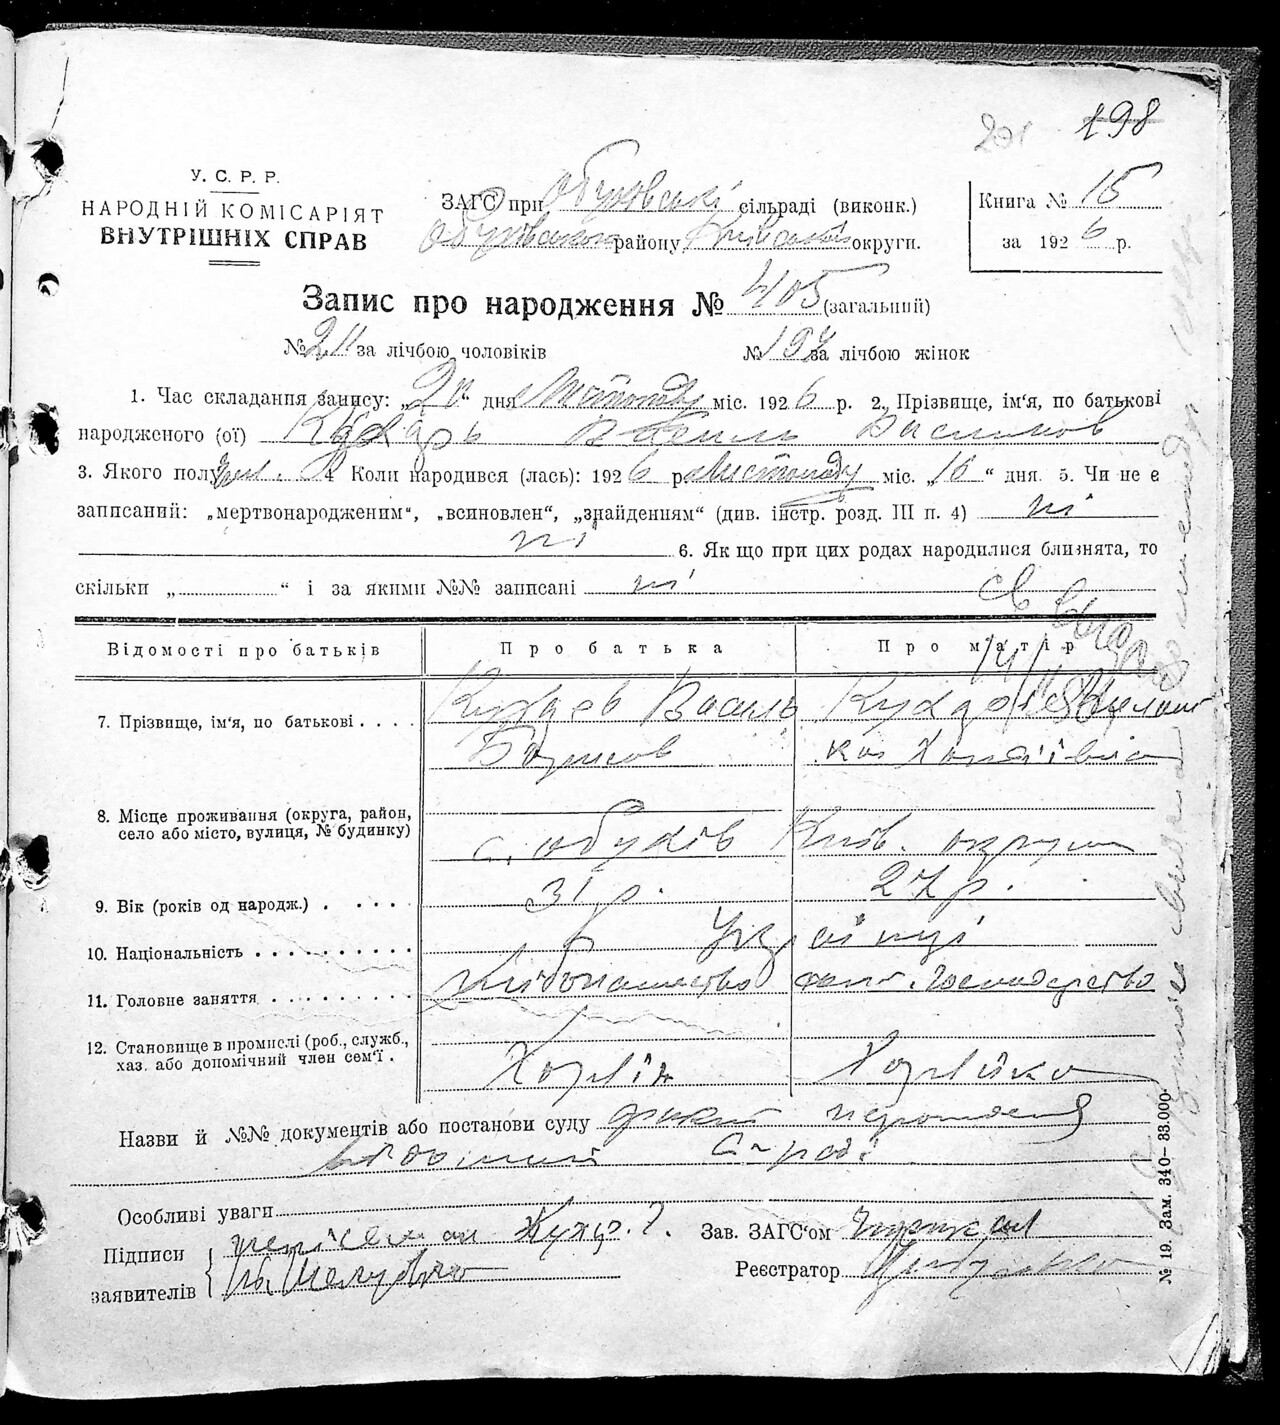 201 198
У. С. Р. Р.
НАРОДНІЙ КОМІСАРІЯТ
ВНУТРІШНІХ СПРАВ
ЗАГС при Обухівські сільраді (виконк.)
Обухівського району Київської округи.
Книга № 15
за 1926 р.
Запис про народження № 405 (загальний)
№ 211 за лічбою чоловіків № 194 за лічбою жінок
1. Час складання запису: „20“ дня Листопаду міс. 1926 р. 2. Прізвище, ім'я, по батькові
народженого (ої) Кухарь Василь Васильов
3. Якого полу чол. 4 Коли народився (лась): 1926 р Листопаду міс. „16“ дня. 5. Чи не є
записаний: „мертвонародженим“, „всиновлен“, „знайденям“ (див. інстр. розд. III п. 4) ні
ні 6. Як що при цих родах народилися близнята, то
скільки „ “ і за якими №№ записані ні
Відомості про батьків Про батька Про матір
7. Прізвище, ім'я, по батькові . . . . Кухарь Василь
Борисов
8. Місце проживання (округа, район,
село або місто, вулиця, № будинку) с. Обухів Київ. округи
9. Вік (років од народж.) . . . . . 31 р. 27 р.
10. Національність . . . . . . . . . . Українці
11. Головне заняття . . . . . . . . . Хлібопашество дом. господарство
12. Становище в промислі (роб., служб.,
хаз. або допомічний член сем'ї . Хазяїн Хазяйка
Назви й №№ документів або постанови суду факт народження
відомий С-раді
Особливі уваги
Підписи
заявителів
Кухар
Зав. ЗАГС'ом
Реєстратор
№ 19. Зам. 340—33.000.